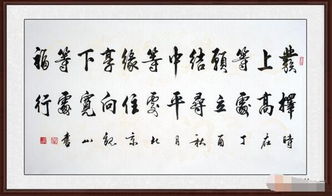 發上等願結中等緣享下等福
擇高處立尋平處住向寬處行
時在丁酉秋月於北京山書